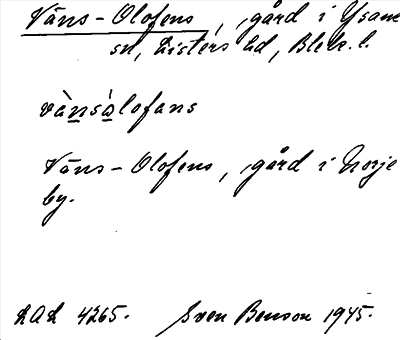 Väns-Olofens, gård i Ysane
sn, Listers hd, Blek. l.
vànsòlofans
Väns-Olofens, gård i Norje
by.
LAL 4265. Sven Benson 1945.